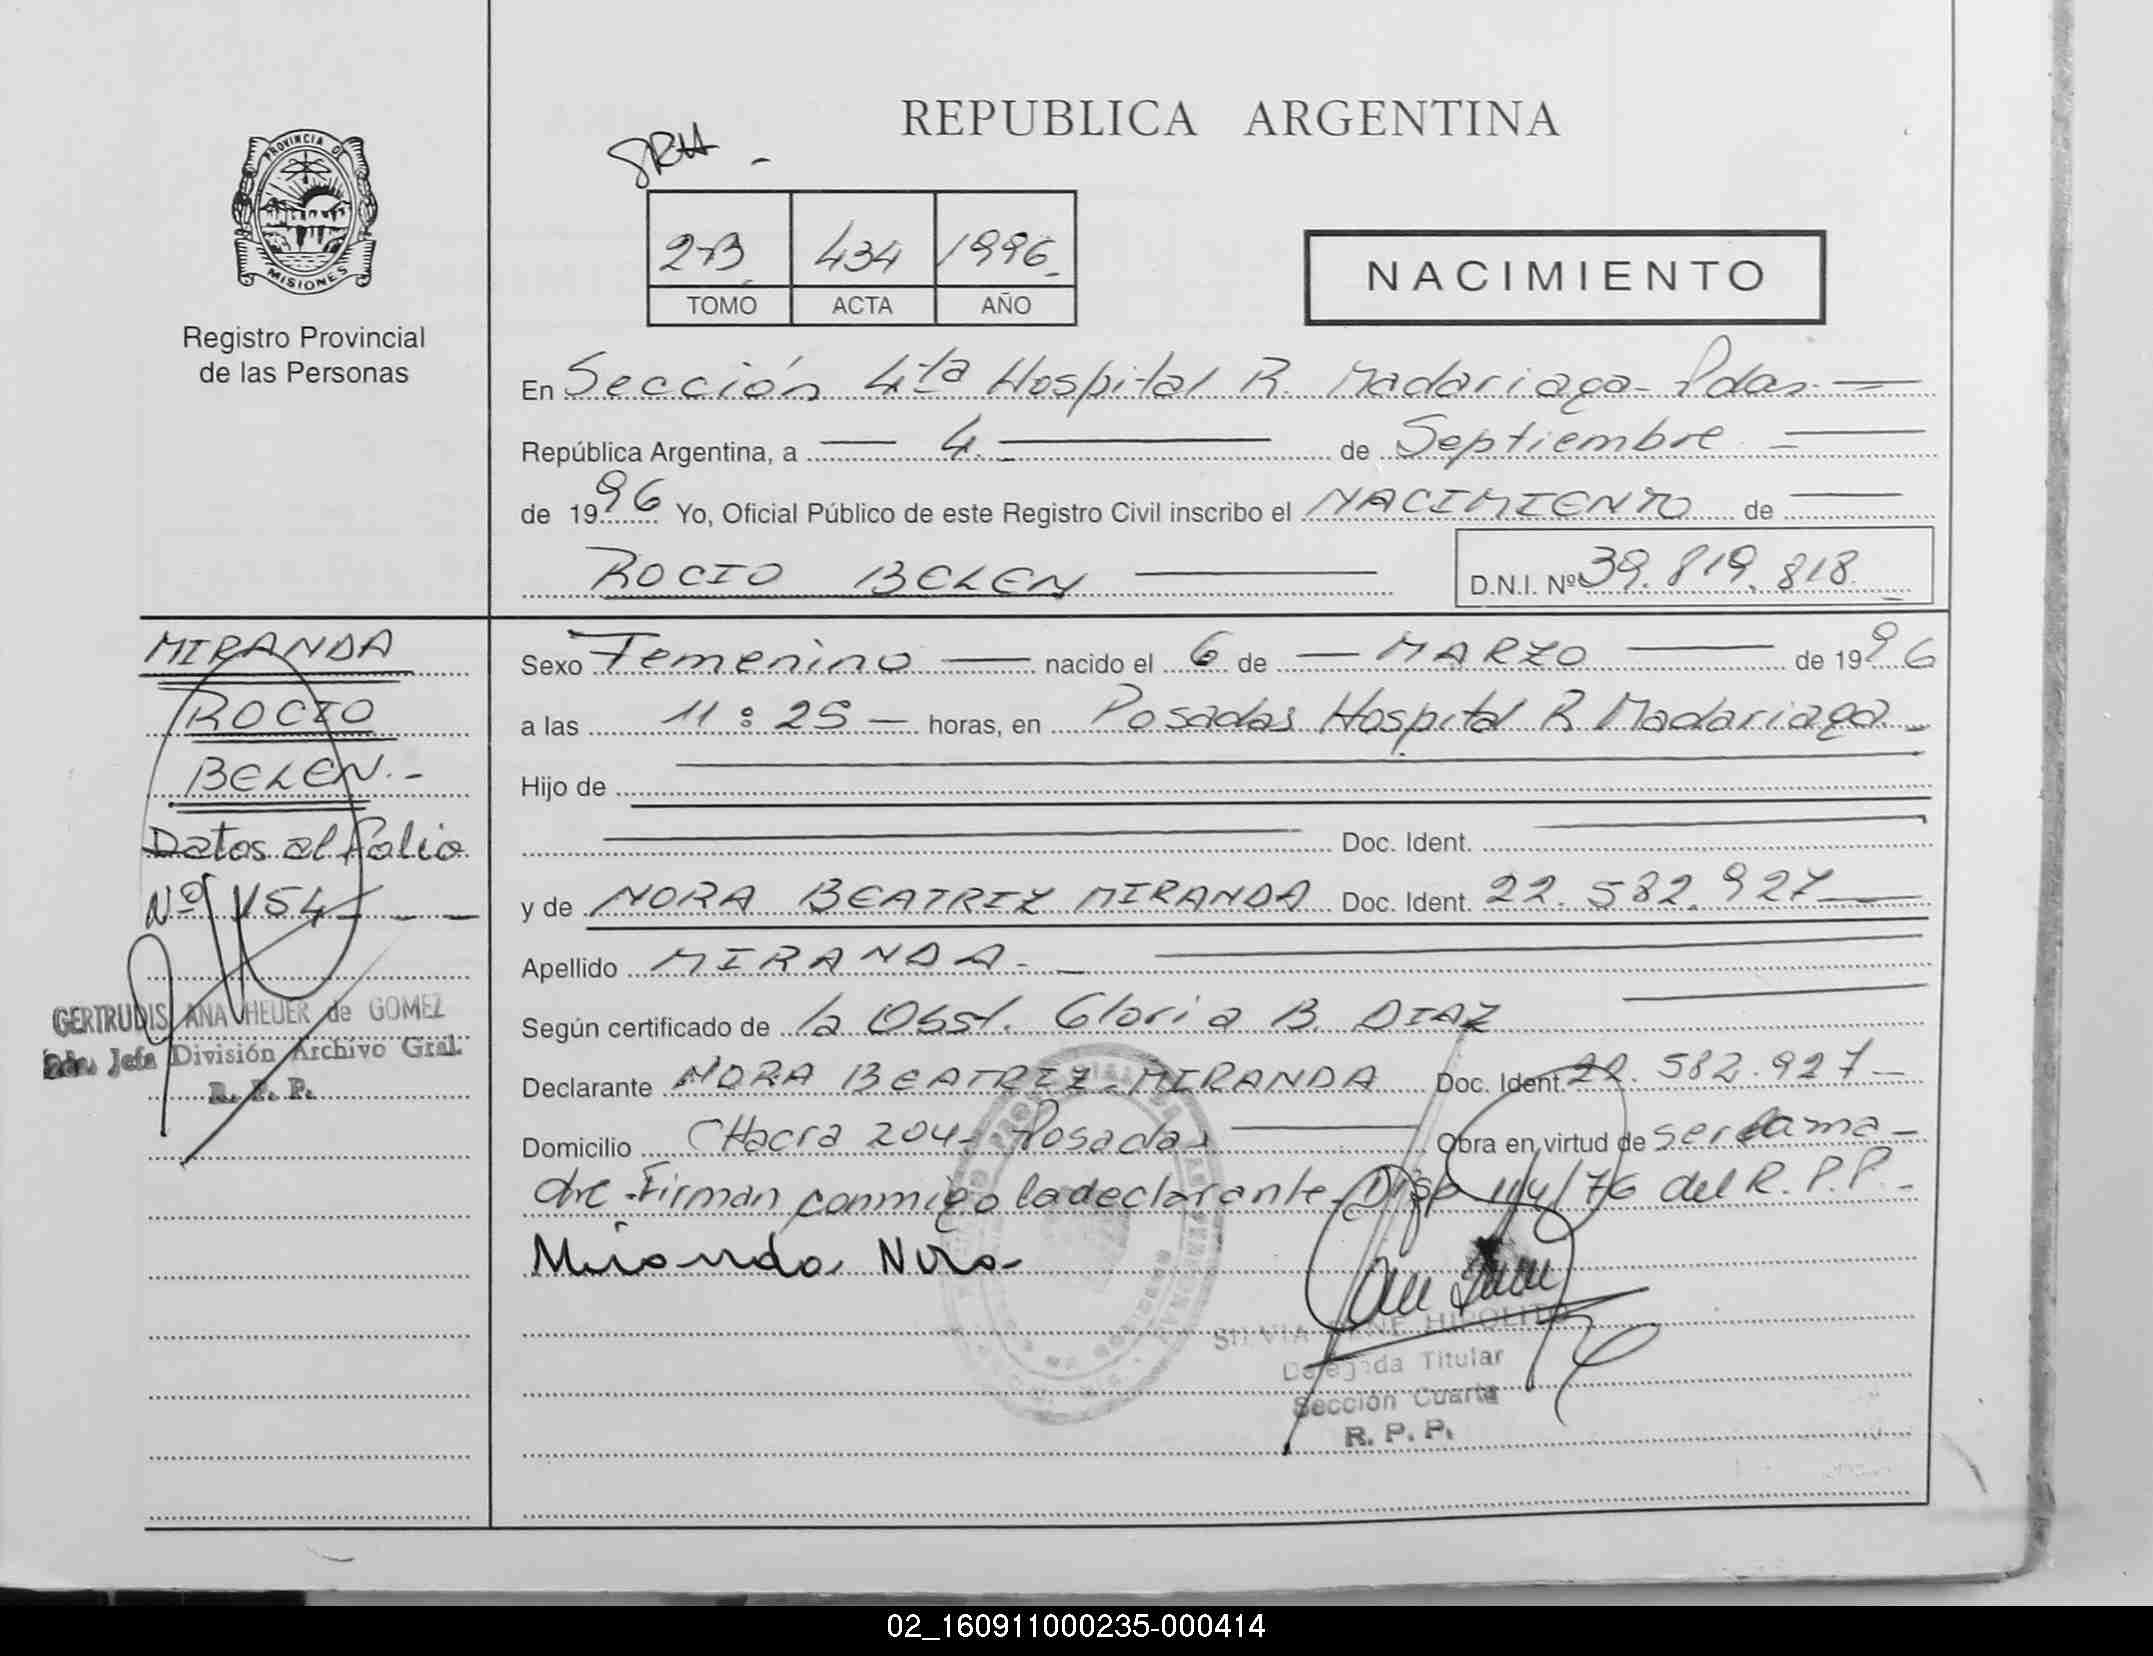 REPUBLICA ARGENTINA
PROVINCIA DE
MISIONES
Registro Provincial
de las Personas
2-B 434 1996
TOMO ACTA AÑO
NACIMIENTO
En Sección 4ta Hospital R. Madariaga - Pdas.
República Argentina, a 4 de Septiembre
de 1996 Yo, Oficial Público de este Registro Civil inscribo el NACIMIENTO de
ROCIO BELEN D.N.I. Nº 39.819.818
MIRANDA
ROCIO
BELEN.-
Datos al folio
Nº 154
GERTRUDIS ANA HEUER de GOMEZ
Jefa División Archivo Gral.
R. P. P.
Sexo Femenino nacido el 6 de MARZO de 1996
a las 11:25 horas, en Posadas Hospital R Madariaga
Hijo de
Doc. Ident.
y de NORA BEATRIZ MIRANDA Doc. Ident. 22.582.927
Apellido MIRANDA.-
Según certificado de la Obst. Gloria B. DIAZ
Declarante NORA BEATRIZ MIRANDA Doc. Ident. 22.582.927
Domicilio CHacra 204- Posadas Obra en virtud de ser la ma-
dre - Firman conmigo la declarante - Disp 14/76 del R.P.P.-
Miranda Nora
SILVIA RENE HIPOLITO
Delegada Titular
Sección Cuarta
R. P. P.
02_160911000235-000414